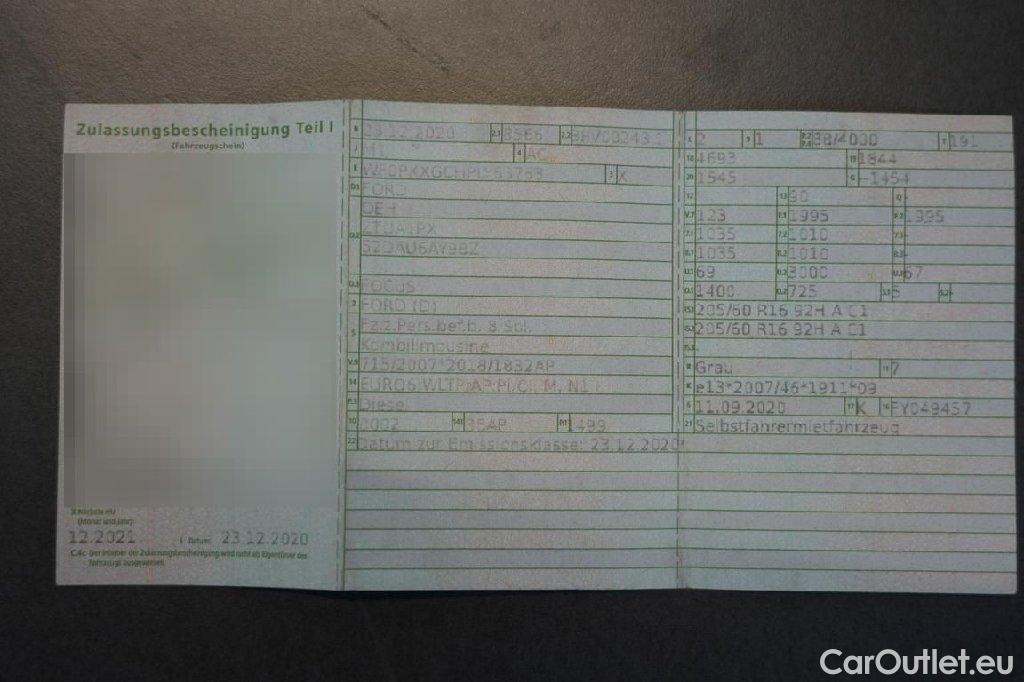 Zulassungsbescheinigung Teil I
(Fahrzeugschein)
X Nächste HU
(Monat und Jahr)
12.2021 I Datum: 23.12.2020
C.4c Der Inhaber der Zulassungsbescheinigung wird nicht als Eigentümer des
Fahrzeugs ausgewiesen.
B 23.12.2020 2.1 8566 2.2
J M1 4 AC
E 3 X
D.1 FORD
DEH
D.2
D.3 FOCUS
2 FORD (D)
5 Fz.z.Pers.bef.b. 8 Spl.
Kombilimousine
V.9 715/2007*2018/1832AP
14 EURO6 WLTP;AP;PI/CI; M, N1 I
P.3 Diesel
10 0002 14.1 36AP P.1 1499
22 Datum zur Emissionsklasse: 23.12.2020
L 2 9 1 P.2 P.4 88/4000 T 191
18 4693 19 1844
20 1545 G 1454
12 - 13 90 Q -
V.7 123 F.1 1995 F.2 1995
7.1 1035 7.2 1010 7.3 -
8.1 1035 8.2 1010 8.3 -
U.1 69 U.2 3000 U.3 67
O.1 1400 O.2 725 S.1 5 S.2 -
15.1 205/60 R16 92H A C1
15.2 205/60 R16 92H A C1
15.3 -
R Grau 11 7
K e13*2007/46*1911*09
6 11.09.2020 17 K 16 FY049457
21 Selbstfahrermietfahrzeug
CarOutlet.eu